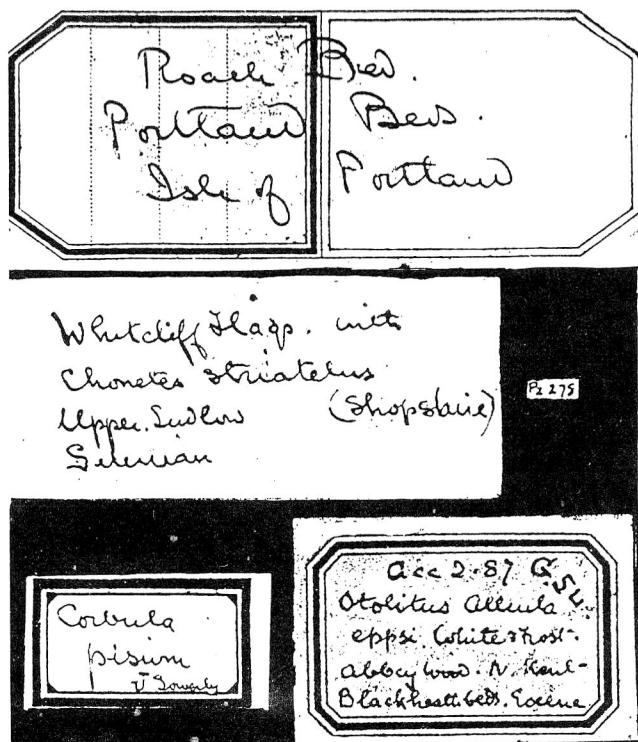 Roach Bed.
Portland Beds.
Isle of Portland
Whitcliff Flags. with
Chonetes striatelus
Upper. Ludlow (Shopshire)
Silurian
Pz 275
Corbula
pisum
J Sowerby
acc 2.87 G.S.L.
Otolitus Albula
eppsi White & Frost.
abbey wood. N. Kent-
Blackheath beds. Eocene